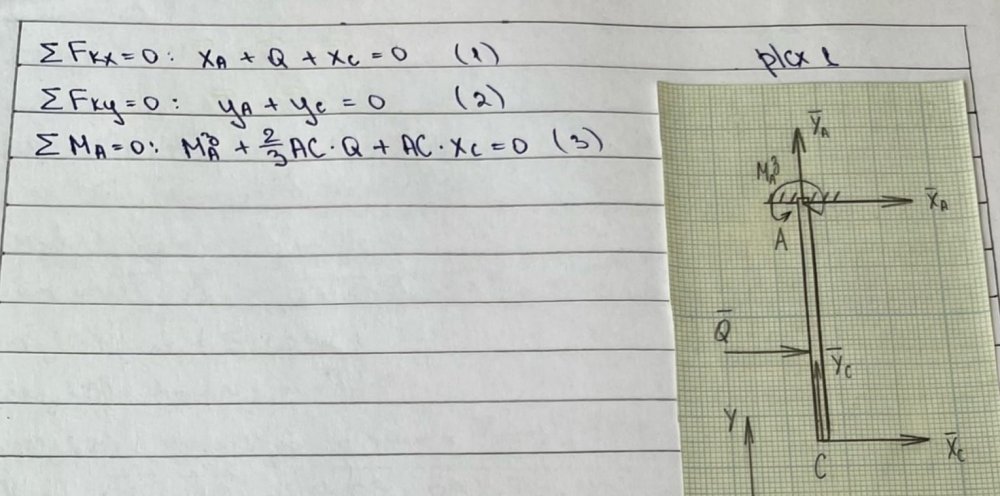 ΣFкх=0: XA + Q + XC = 0 (1)
ΣFку=0: YA + YC = 0 (2)
ΣMA=0: MAз + 2/3 AC · Q + AC · XC = 0 (3)
рсх 1
Y̅A
MAз
X̅A
A
Q̅
Y̅C
Y
C
X̅C